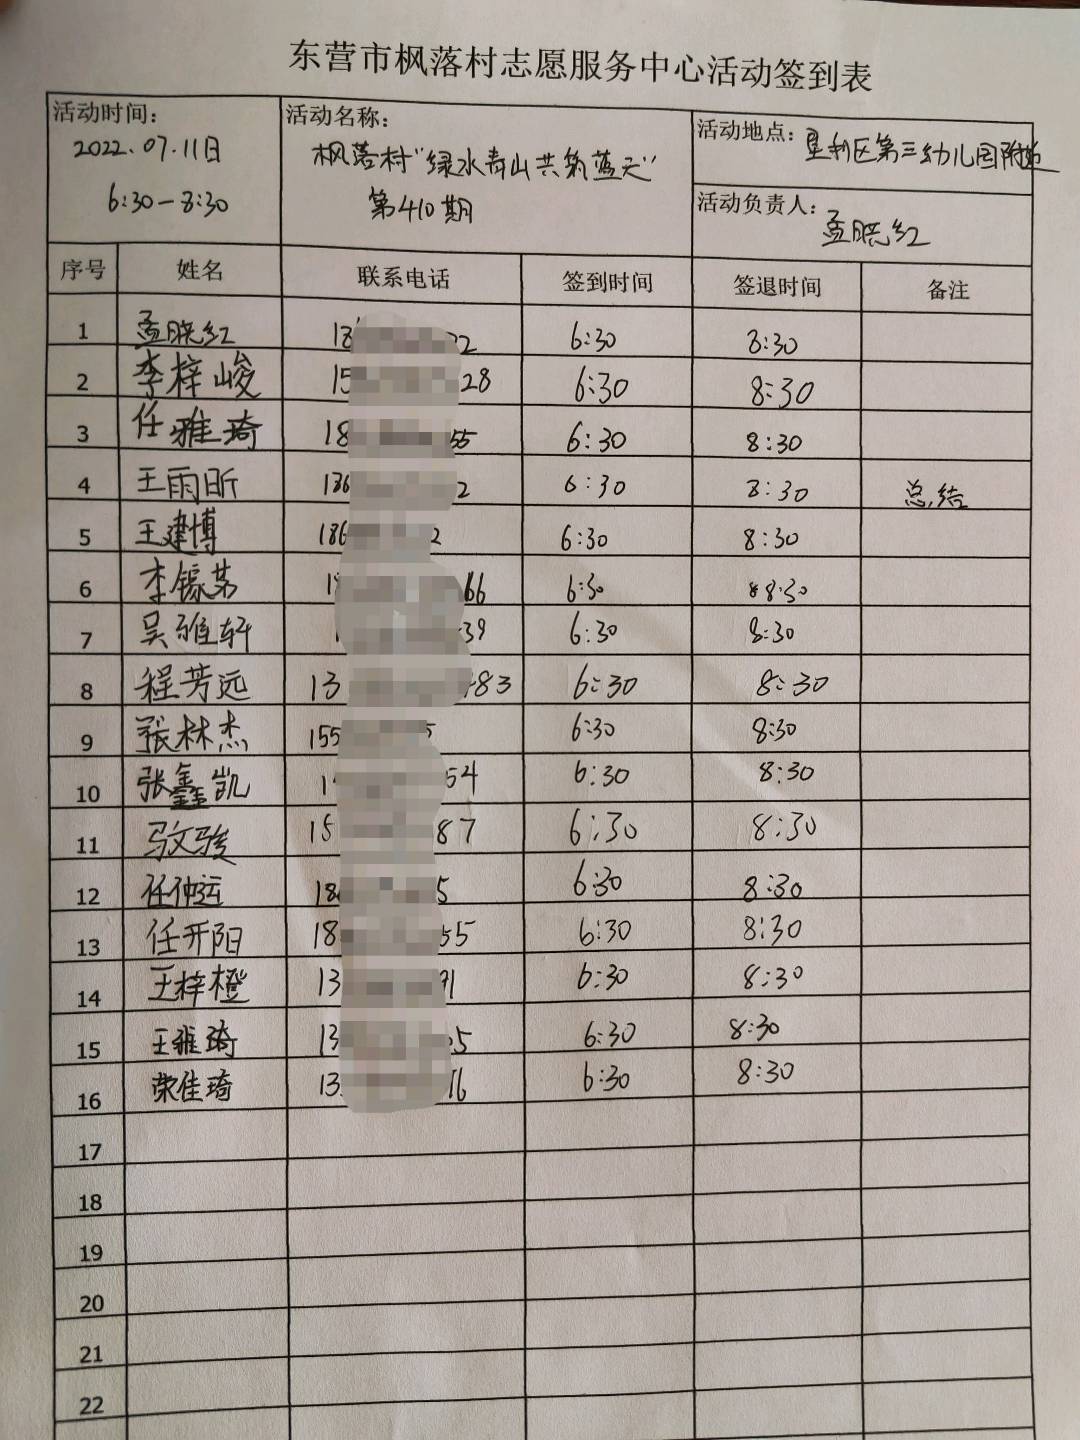 东营市枫落村志愿服务中心活动签到表
活动时间：
2022.07.11日
6:30-8:30
活动名称：
枫落村"绿水青山共筑蓝天"
第410期
活动地点：垦利区第三幼儿园附近
活动负责人：
孟晓红
序号 姓名 联系电话 签到时间 签退时间 备注
1 孟晓红 22 6:30 8:30
2 李梓峻 15 28 6:30 8:30
3 任雅琦 18 55 6:30 8:30
4 王雨昕 136 2 6:30 8:30 总结
5 王建博 186 2 6:30 8:30
6 李 66 6:30 8:30
7 吴雅轩 39 6:30 8:30
8 程芳远 13 83 6:30 8:30
9 张林杰 155 5 6:30 8:30
10 张鑫凯 1 54 6:30 8:30
11 马文骏 15 87 6:30 8:30
12 任仲运 18 5 6:30 8:30
13 任开阳 18 55 6:30 8:30
14 王梓橙 13 91 6:30 8:30
15 王雅琦 13 5 6:30 8:30
16 荣佳琦 13 16 6:30 8:30
17
18
19
20
21
22